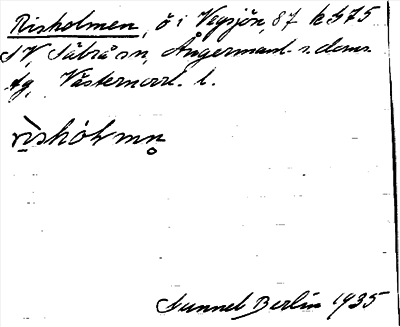 Risholmen, ö i Vegsjön, 87 k 575
SV, Säbrå sn, Ångermanl. s. doms.
tg, Västernorrl. l.
rìshólmn̥
Sunnel Berlin 1935